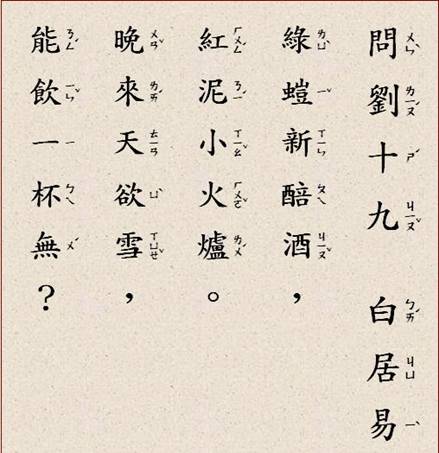 問劉十九 白居易
綠螘新醅酒，
紅泥小火爐。
晚來天欲雪，
能飲一杯無？